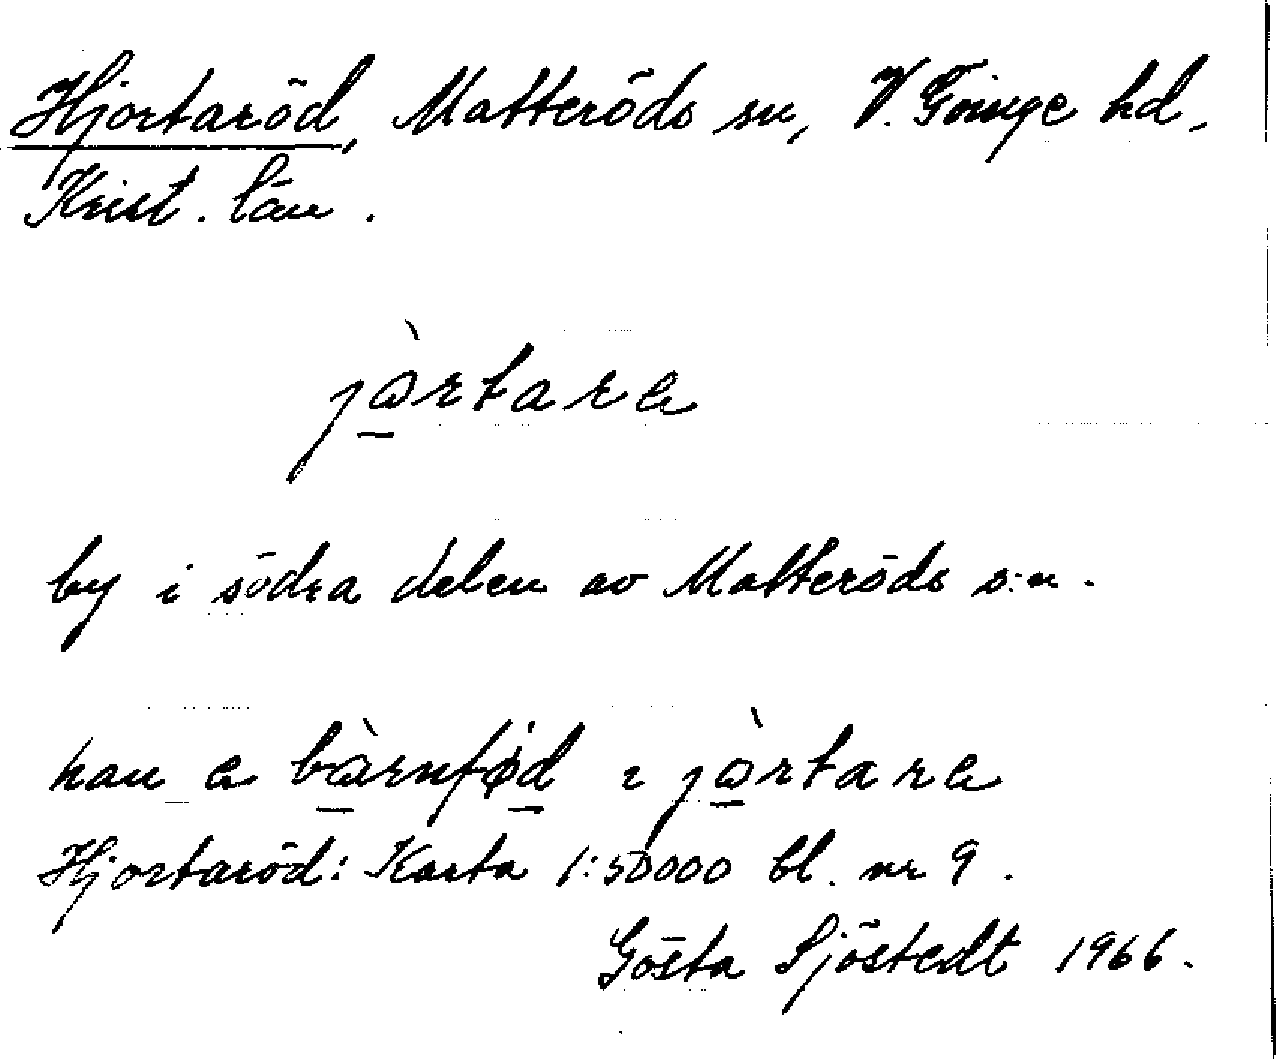 Hjortaröd, Matteröds sn, V. Göinge hd,
Krist. län.
jɑ̀rtarɐ
by i södra delen av Matteröds s:n.
han ɐ bɑ̀rnfød ı jɑ̀rtarɐ
Hjortaröd: Karta 1:50000 bl. nr 9.
Gösta Sjöstedt 1966.